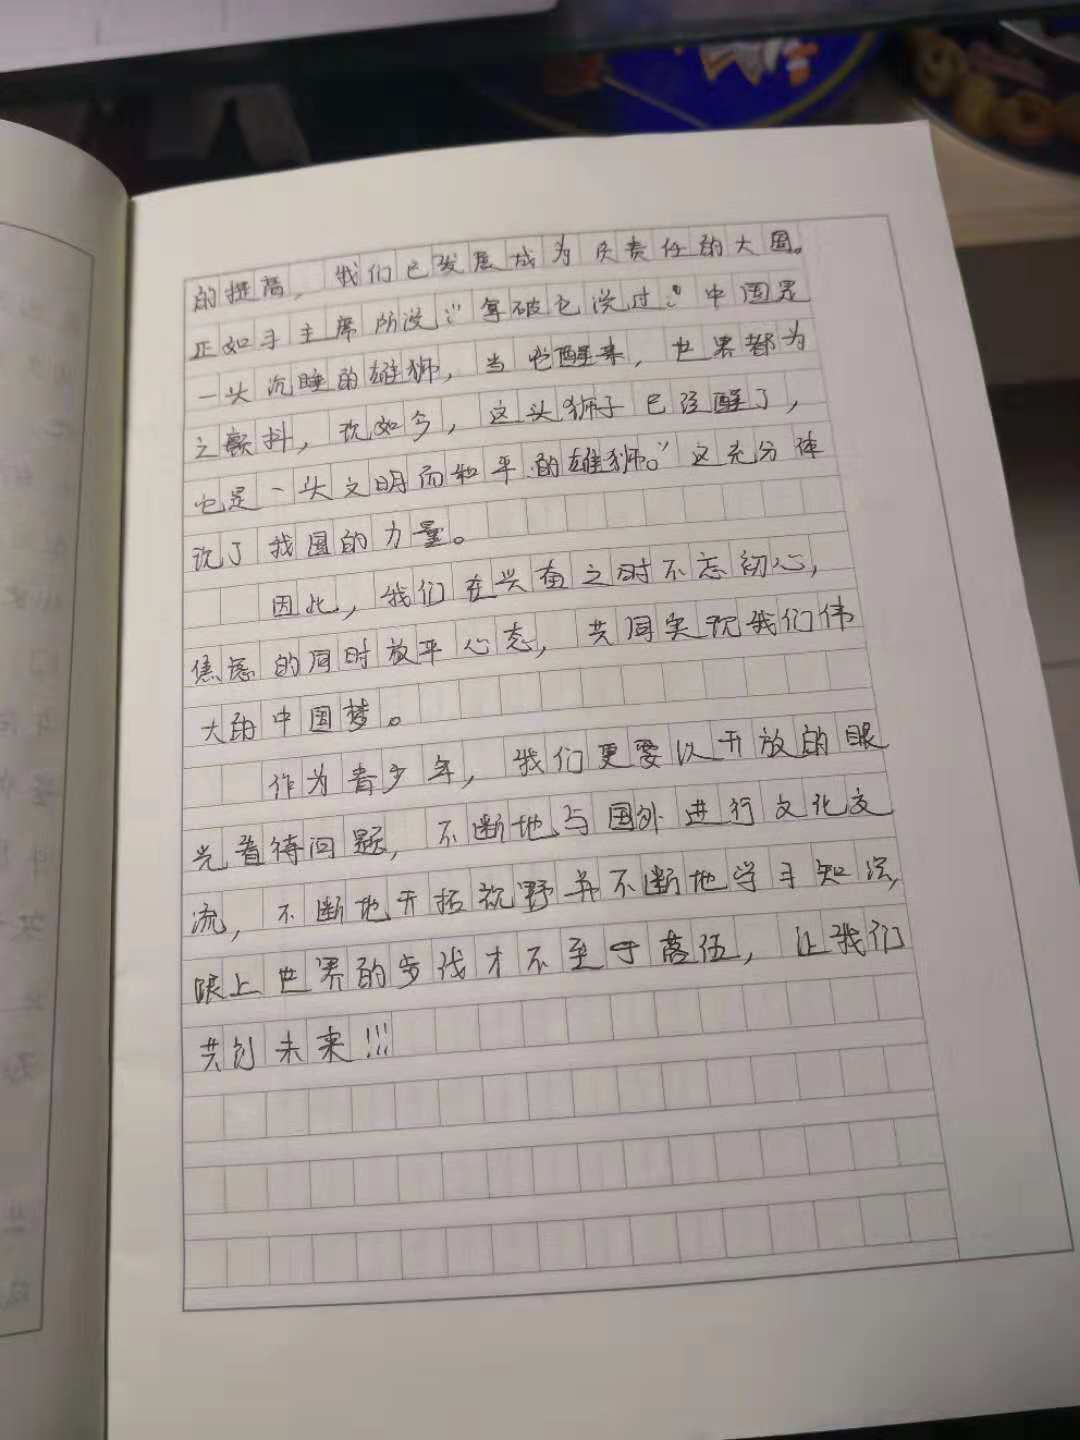 的提高，我们已发展成为负责任的大国。
正如习主席所说：“拿破仑说过：‘中国是
一头沉睡的雄狮，当它醒来，世界都为
之颤抖，现如今，这头狮子已经醒了，
它是一头文明而和平的雄狮。”这充分体
现了我国的力量。
因此，我们在兴奋之时不忘初心，
焦虑的同时放平心态，共同实现我们伟
大的中国梦。
作为青少年，我们更要以开放的眼
光看待问题，不断地与国外进行文化交
流，不断地开拓视野并不断地学习知识，
跟上世界的步伐才不至于落伍，让我们
共创未来!!!